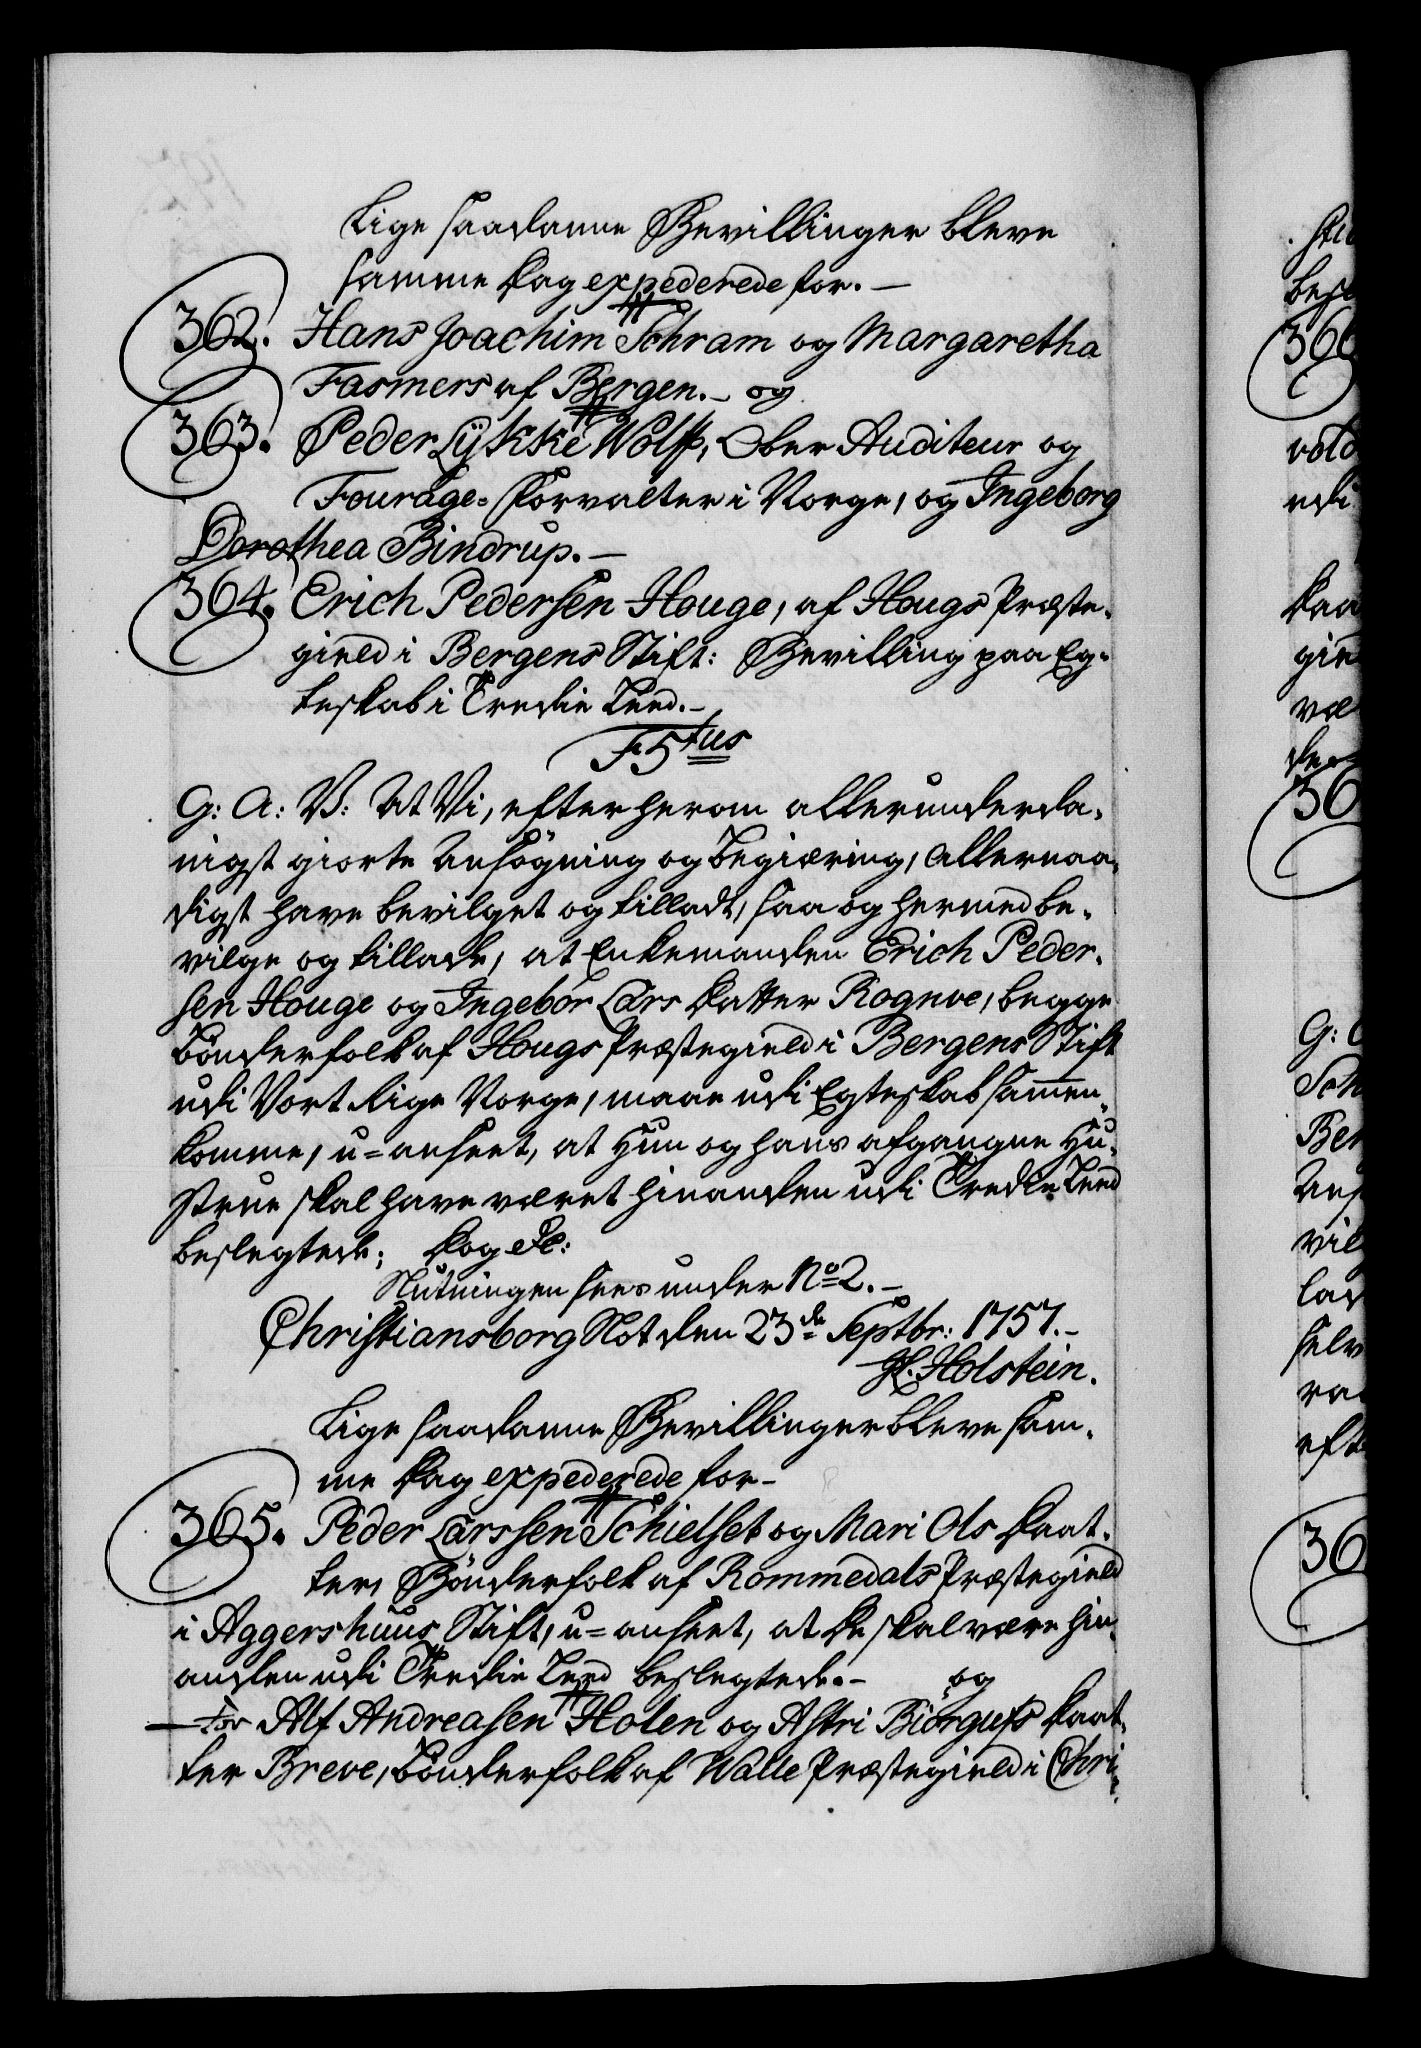 Lige saadanne Bevillinger bleve
samme Dag expederede for. —
362. Hans Joachim Schram og Margaretha
Fasmers af Bergen. — og
363. Peder Lykke Wolff, Ober Auditeur og
Fourage-Forvalter i Norge, og Ingeborg
Dorothea Bindrup. —
364. Erich Pedersen Houge, af Hougs Præste-
gield i Bergens Stift: Bevilling paa Eg-
teskab i Tredie Leed. —
F 5tus
G: A: V: At Vi, efter herom allerunderda-
nigst giorte Ansøgning og Begiæring, Allernaa-
digst have bevilget og tilladt, saa og hermed be-
vilge og tillade, at Enkemanden Erich Peder-
sen Houge og Ingebor Lars Datter Rogneve, begge
Bønderfolk af Hougs Præstegield i Bergens Stift
udi Vort Rige Norge, maae udi Egteskab sammen-
komme, u-anseet, at Hun og hans afgangne Hu-
strue skal have været hinanden udi Tredie Leed
beslegtede; Dog &c:
Slutningen sees under No 2. —
Christiansborg Slot den 23de Septbr: 1757. —
H. Holstein.
Lige saadanne Bevillinger bleve sam-
me Dag expederede for —
365. Peder Larssen Schielset og Mari Ols Daat-
ter, Bønderfolk af Rommedals Præstegield
i Aggershuus Stift, u-anseet, at De skal være hin-
anden udi Tredie Leed beslegtede. — og
— for Alf Andreasen Holen og Astri Biörgufs Daat-
ter Breve, Bønderfolk af Walle Præstegield i Chri-